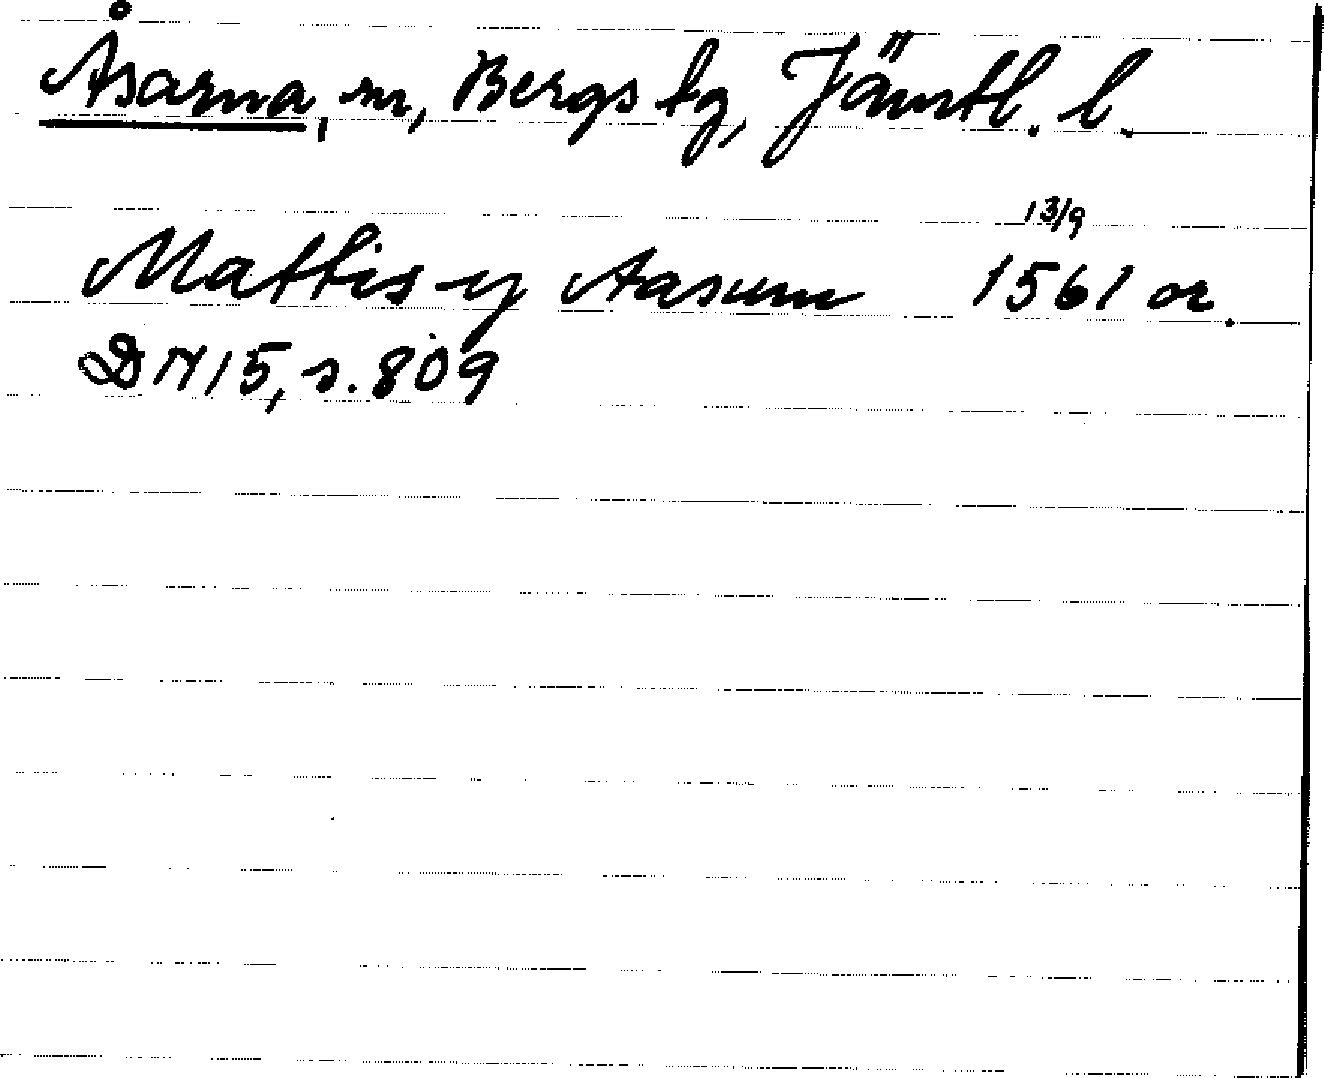 Åsarna, sn, Bergs tg, Jämtl. l.
13/9
Mattis y Aasum 1561 or.
DN 15, s. 809